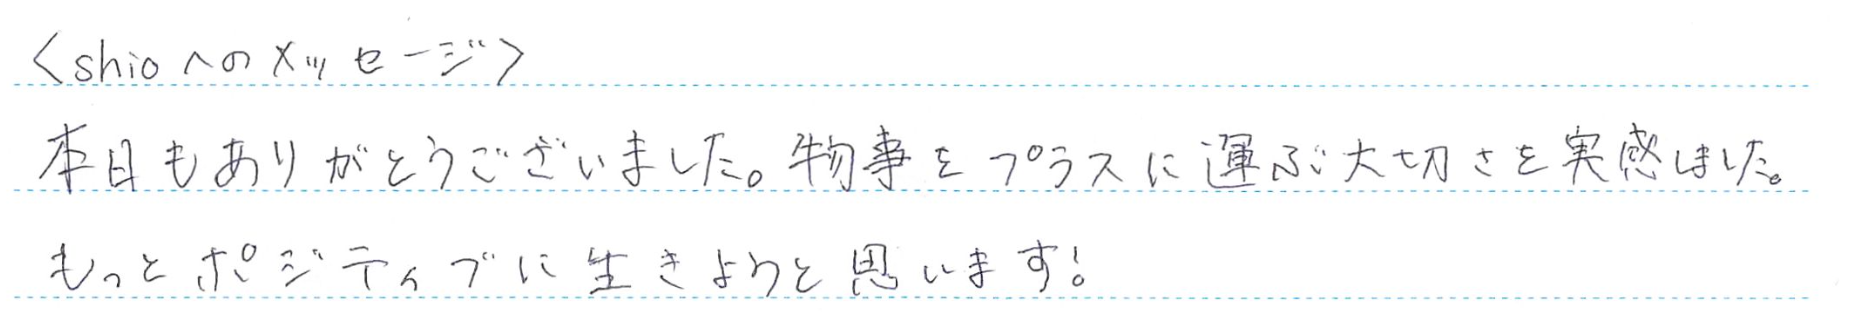 〈shioへのメッセージ〉
本日もありがとうございました。物事をプラスに運ぶ大切さを実感しました。
もっとポジティブに生きようと思います!